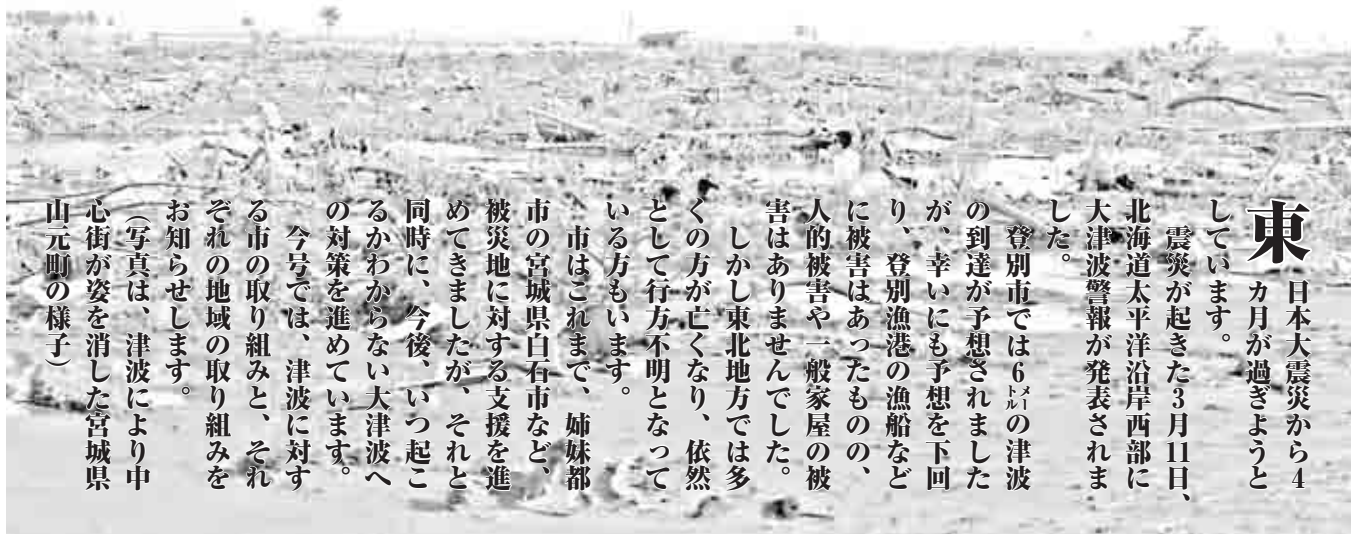 東日本大震災から4
カ月が過ぎようと
しています。
震災が起きた3月11日、
北海道太平洋沿岸西部に
大津波警報が発表されま
した。
登別市では6メートルの津波
の到達が予想されました
が、幸いにも予想を下回
り、登別漁港の漁船など
に被害はあったものの、
人的被害や一般家屋の被
害はありませんでした。
しかし東北地方では多
くの方が亡くなり、依然
として行方不明となって
いる方もいます。
市はこれまで、姉妹都
市の宮城県白石市など、
被災地に対する支援を進
めてきましたが、それと
同時に、今後、いつ起こ
るかわからない大津波へ
の対策を進めています。
今号では、津波に対す
る市の取り組みと、それ
ぞれの地域の取り組みを
お知らせします。
（写真は、津波により中
心街が姿を消した宮城県
山元町の様子）